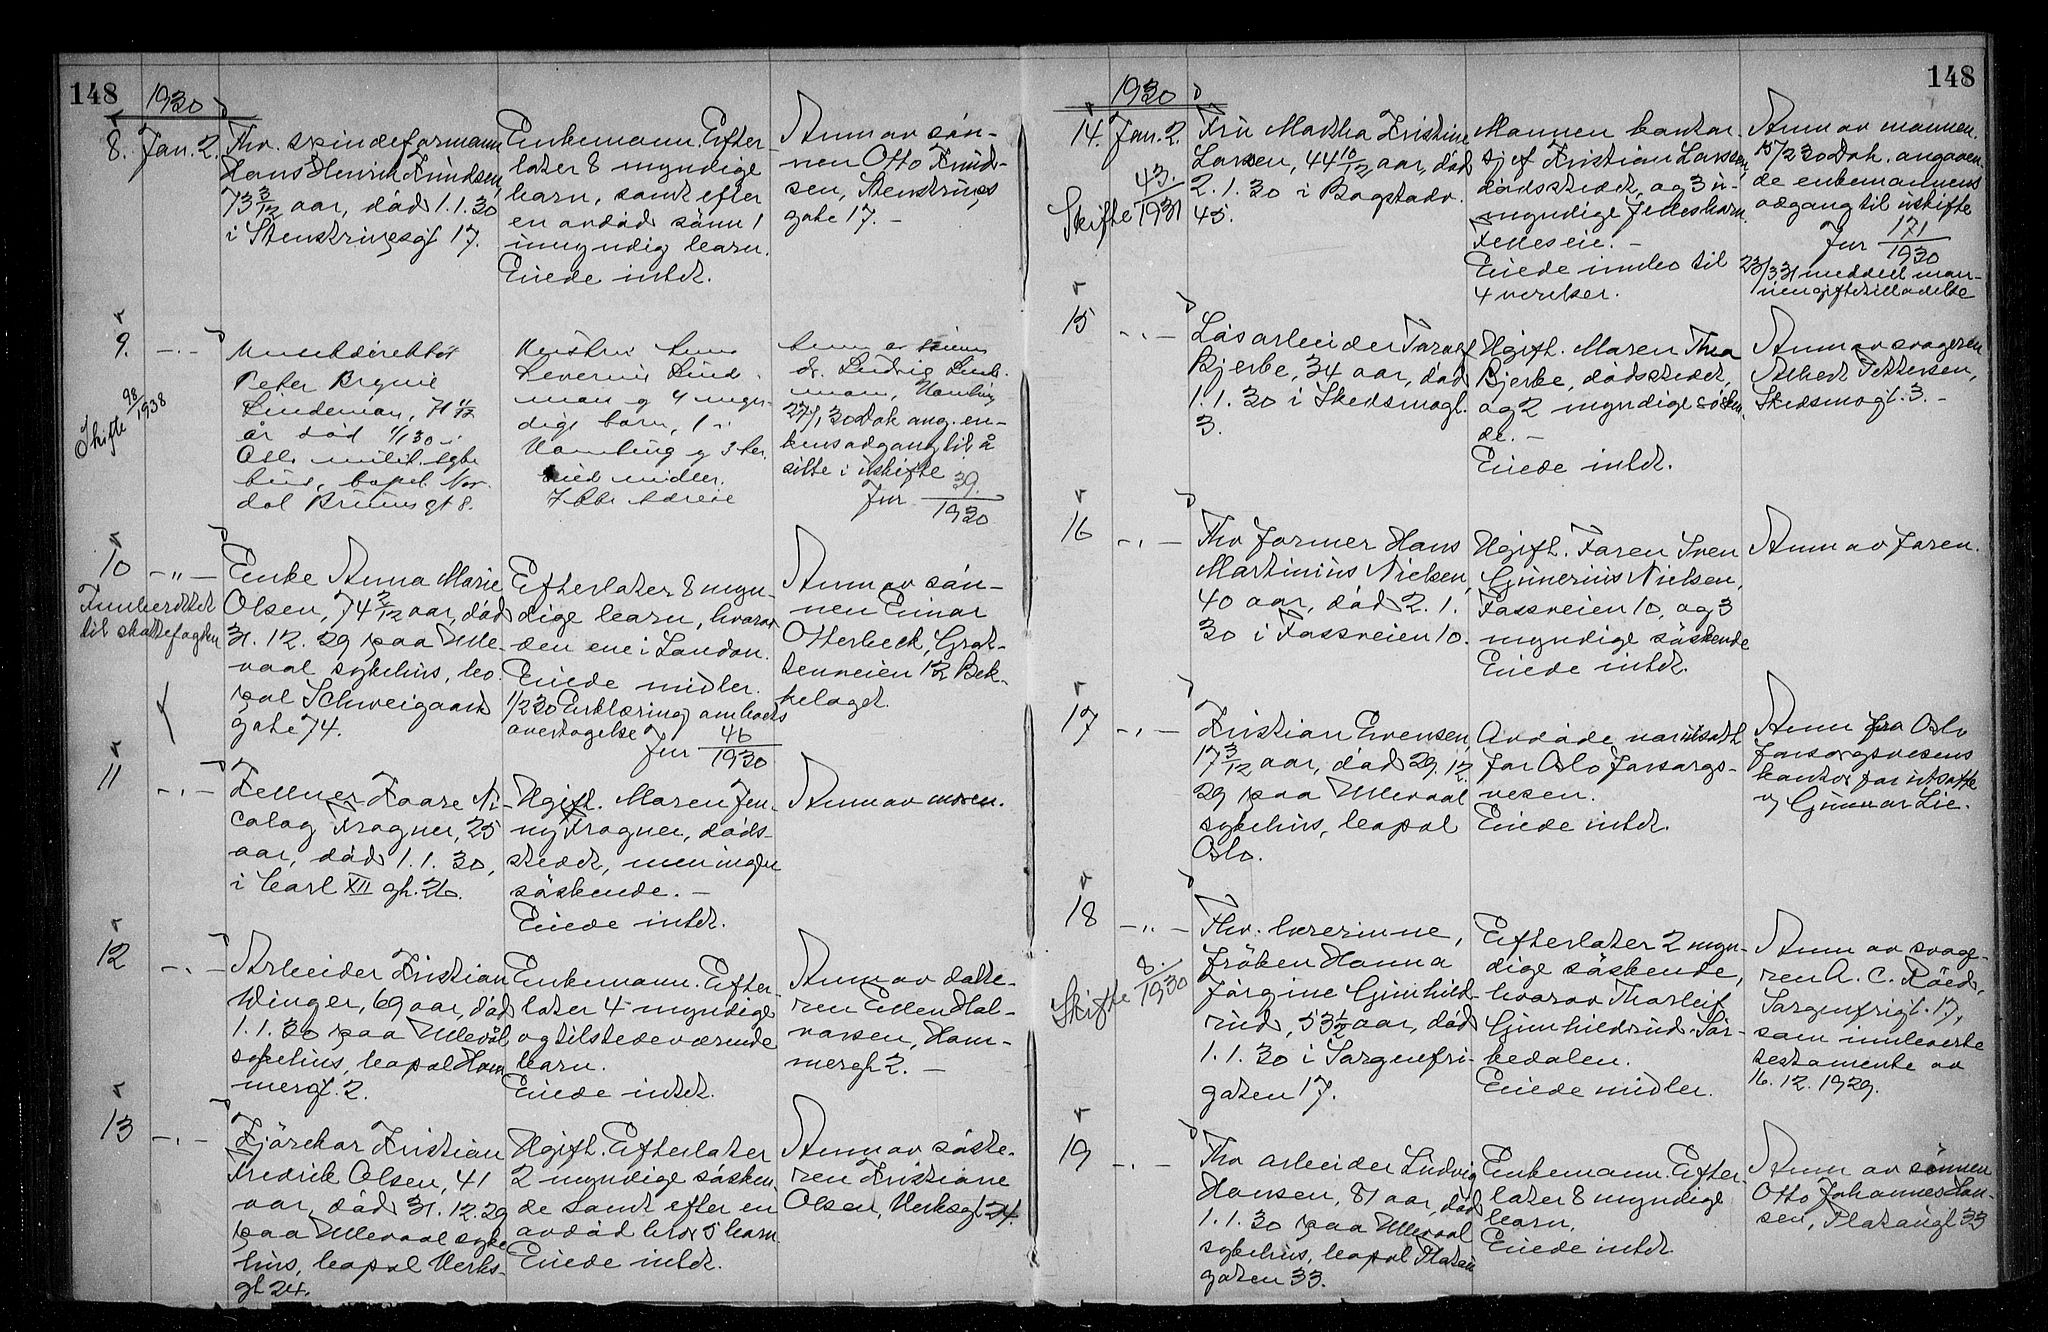 148
1930
8. Jan. 2. Fhv. spindeformann
Hans Henrik Knudsen,
73 3/12 aar, död 1.1.30
i Stenstrupsgt 17.
Enkemann. Efter-
later 8 myndige
barn, samt efter
en avdöd sönn 1
umyndig barn.
Eiede intet.
Anm av sön-
nen Otto Knud-
sen, Stenstrups
gate 17. -
9. -.-
Skifte 98/1938
Musikdirektör
Peter Brynie
Lindeman, 71 11/12
år död 1/1 30 i
Oslo milit. syke
hus, bopel Nor
dal Brunsgt 8.
Severine Lind
man og 4 myn-
dige barn, 1 i
Hamburg og 3 her.
Eiet midler.
Ikke særeie
Anm av
dr. Ludvig Linde
man, Hamburg
27/1 30 Dok ang. en-
kens adgang til å
sitte i uskifte
Jnr 39/1930
10 -"-
Innberettet
til skattefogden
Enke Anna Marie
Olsen, 74 2/12 aar, död
31.12.29 paa Ulle-
vaal sykehus, bo-
pæl Schweigaards
gate 74.
Efterlater 8 myn-
dige barn, hvorav
den ene i London.
Eiede midler.
1/2 30 Erklæring om boets
overtagelse
Jnr 46/1930
Anm av sön-
nen Einar
Otterbeck, Grot-
tenveien 12 Bek-
kelaget.
11 -.-
Kelner Kaare Ni-
colay Fragner, 25
aar, död 1.1.30,
i Carl XII gt. 26.
Ugift. Moren Jen-
ny Fragner, döds-
stedet, men ingen
söskende. -
Eiede intet.
Anm av moren.
12 -.-
Arbeider Kristian
Winger, 69 aar, död
1.1.30 paa Ullevål
sykehus, bopæl Ham
mersgt. 2.
Enkemann. Efter-
later 4 myndige
og tilstedeværende
barn.
Eiede intet.
Anm av datte-
ren Ellen Hal-
varsen, Ham-
mersgt 2. -
13 -.-
Kjörekar Kristian
Fredrik Olsen, 41
aar, död 31.12.29
paa Ullevaal syke
hus, bopæl Verks-
gt 24.
Ugift. Efterlater
2 myndige sösken
de samt efter en
avdöd bror 5 barn
Eiede intet.
Anm av söste-
ren Kristiane
Olsen, Verksgt 24.
148
1930
14. Jan. 2.
Skifte 43./1931
Fru Martha Kristine
Larsen, 44 10/12 aar, död
2.1.30 i Bogstadv.
45.
Mannen kontor-
sjef Kristian Larsen,
dödsstedet, og 3 u-
myndige fellesbarn.
Felleseie. -
Eiede innbo til
4 værelser.
Anm av mannen.
15/2 30 Dok. angaaen
de enkemannens
adgang til uskifte
Jnr 171/1930
23/3 31 meddelt man-
nen giftetilladelse
15 -.-
Lösarbeider Torolf
Bjerke, 34 aar, död
1.1.30 i Skedsmogt.
3.
Ugift. Moren Thea
Bjerke, dödsstedet,
og 2 myndige sösken
de. -
Eiede intet.
Anm av svogeren
Albert Pettersen,
Skedsmogt. 3. -
16 -.-
Fhv former Hans
Martinius Nielsen,
40 aar, död 2.1.
30 i Fossveien 10.
Ugift. Faren Sven
Gunerius Nielsen,
Fossveien 10, og 3
myndige söskende
Eiede intet.
Anm av faren.
17 -.-
Kristian Evensen,
17 3/12 aar, död 29.12.
29 paa Ullevaal
sykehus, bopæl
Oslo.
Avdöde var utsatt
for Oslo forsorgs-
vesen.
Eiede intet.
Anm fra Oslo
forsorgsvesens
kontor for utsatte
v Gunnar Lie.
18 -"-
Skifte 8./1930
Fhv. lærerinne,
fröken Hanna
Jörgine Gunhild-
rud, 53 1/2 aar, död
1.1.30 i Sorgenfri-
gaten 17.
Efterlater 2 myn-
dige söskende,
hvorav Thorleif
Gunhildrud Sör-
kedalen.
Eiede midler.
Anm av svoge-
ren A. C. Röed,
Sorgenfrigt. 17,
som innleverte
testamente av
16.12.1929.
19 -.-
Fhv arbeider Ludvig
Hansen, 81 aar, död
1.1.30 paa Ullevaal
sykehus, bopæl Platou
gaten 33.
Enkemann. Efter-
later 8 myndige
barn.
Eiede intet
Anm av sönnen
Otto Johannes Han-
sen, Platougt 33